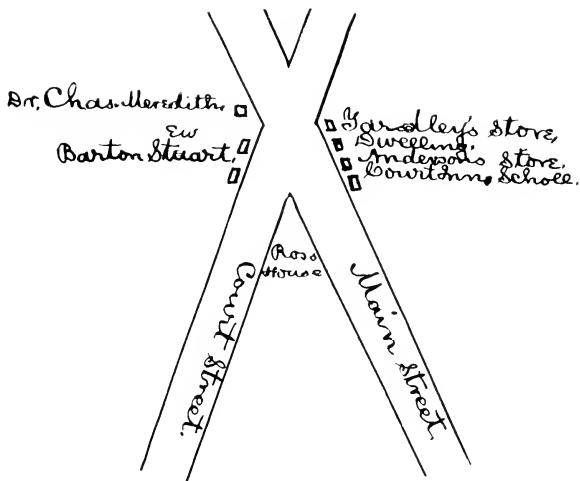 Dr. Chas. Meredith.
Ew
Barton Stuart.
Yardley's Store,
Dwelling.
Anderson's Store.
Court Inn, Scholl.
Ross
House
Court Street.
Main Street